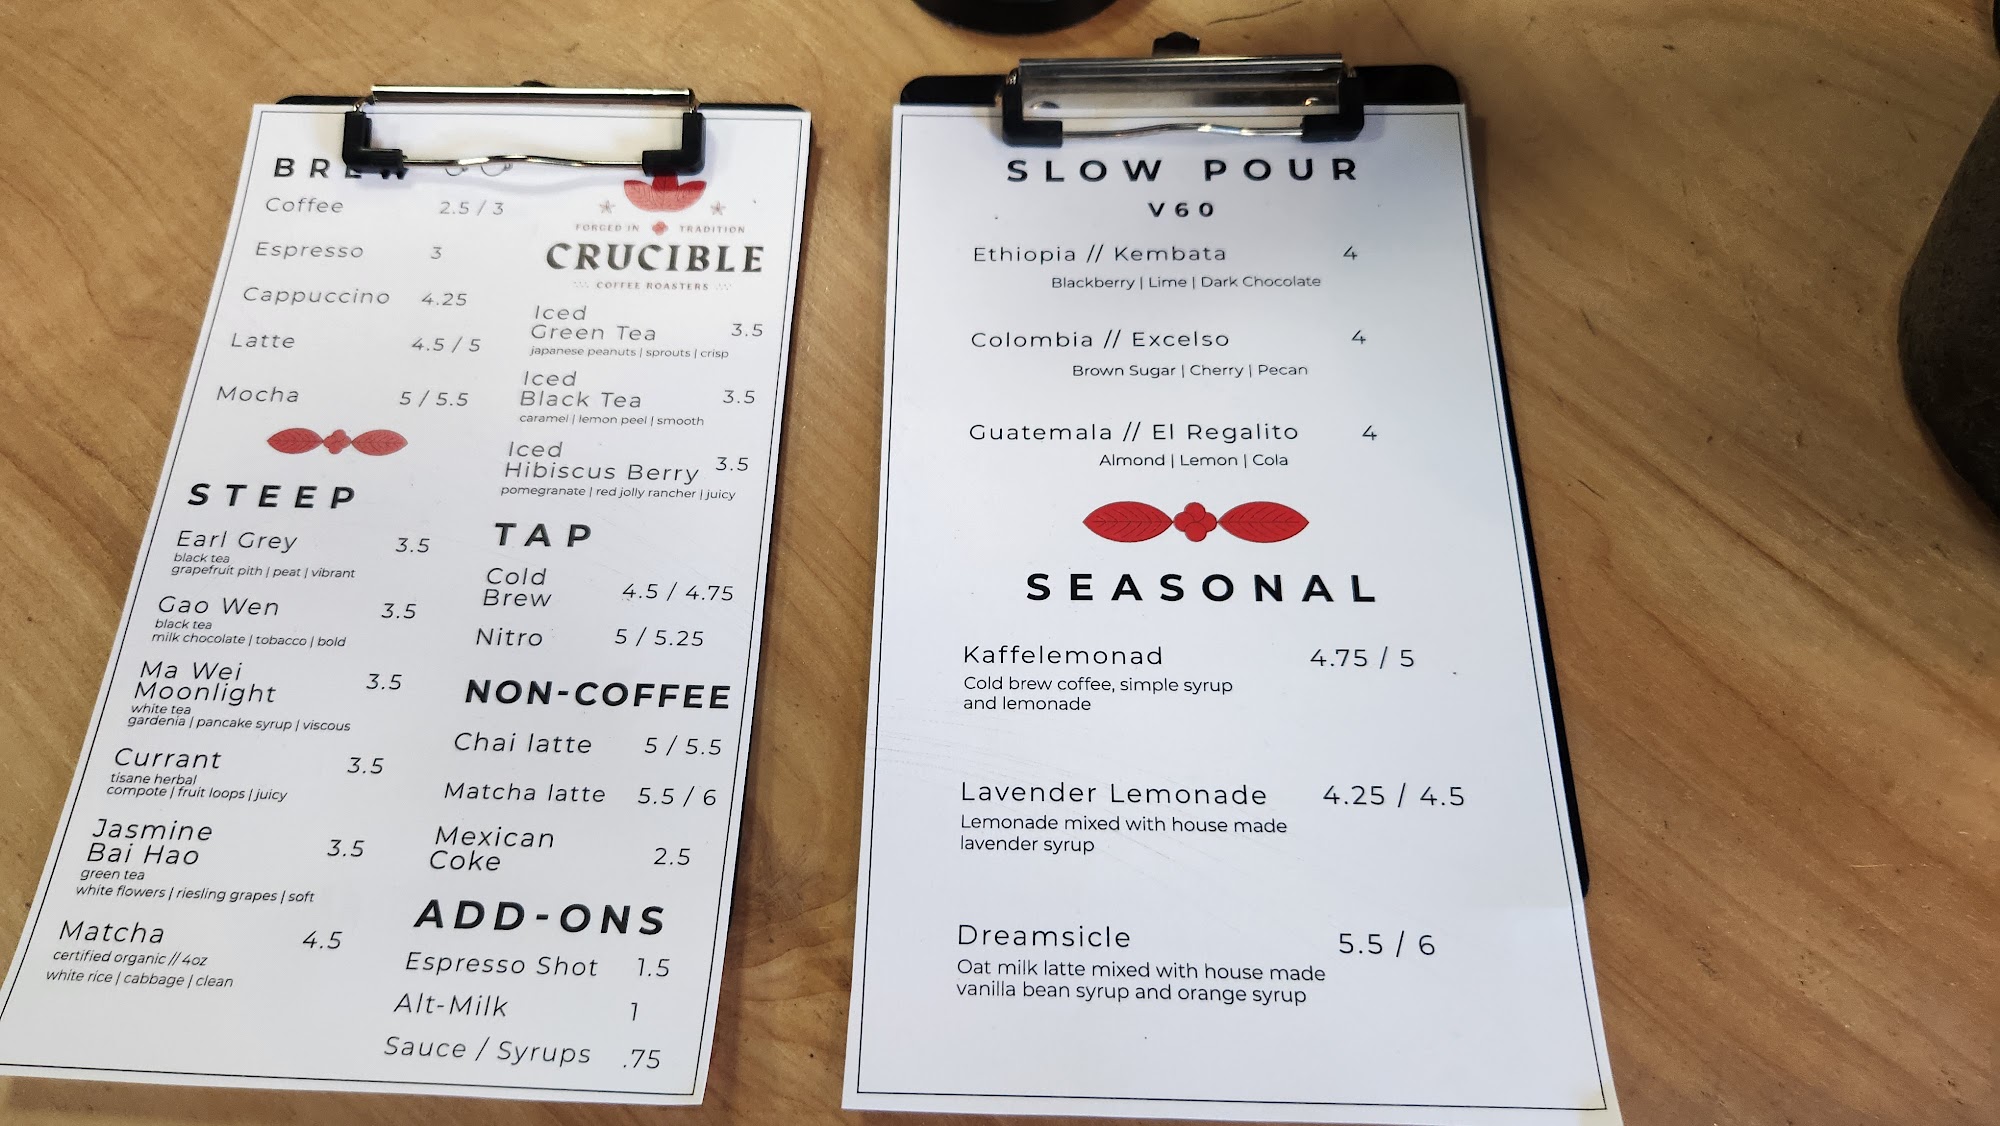 BREW
Coffee 2.5 / 3
Espresso 3
Cappuccino 4.25
Latte 4.5 / 5
Mocha 5 / 5.5
STEEP
Earl Grey 3.5
black tea
grapefruit pith | peat | vibrant
Gao Wen 3.5
black tea
milk chocolate | tobacco | bold
Ma Wei
Moonlight 3.5
white tea
gardenia | pancake syrup | viscous
Currant 3.5
tisane herbal
compote | fruit loops | juicy
Jasmine
Bai Hao 3.5
green tea
white flowers | riesling grapes | soft
Matcha 4.5
certified organic // 4oz
white rice | cabbage | clean
FORGED IN TRADITION
CRUCIBLE
COFFEE ROASTERS
Iced
Green Tea 3.5
japanese peanuts | sprouts | crisp
Iced
Black Tea 3.5
caramel | lemon peel | smooth
Iced
Hibiscus Berry 3.5
pomegranate | red jolly rancher | juicy
TAP
Cold
Brew 4.5 / 4.75
Nitro 5 / 5.25
NON-COFFEE
Chai latte 5 / 5.5
Matcha latte 5.5 / 6
Mexican
Coke 2.5
ADD-ONS
Espresso Shot 1.5
Alt-Milk 1
Sauce / Syrups .75
SLOW POUR
V60
Ethiopia // Kembata 4
Blackberry | Lime | Dark Chocolate
Colombia // Excelso 4
Brown Sugar | Cherry | Pecan
Guatemala // El Regalito 4
Almond | Lemon | Cola
SEASONAL
Kaffelemonad 4.75 / 5
Cold brew coffee, simple syrup
and lemonade
Lavender Lemonade 4.25 / 4.5
Lemonade mixed with house made
lavender syrup
Dreamsicle 5.5 / 6
Oat milk latte mixed with house made
vanilla bean syrup and orange syrup